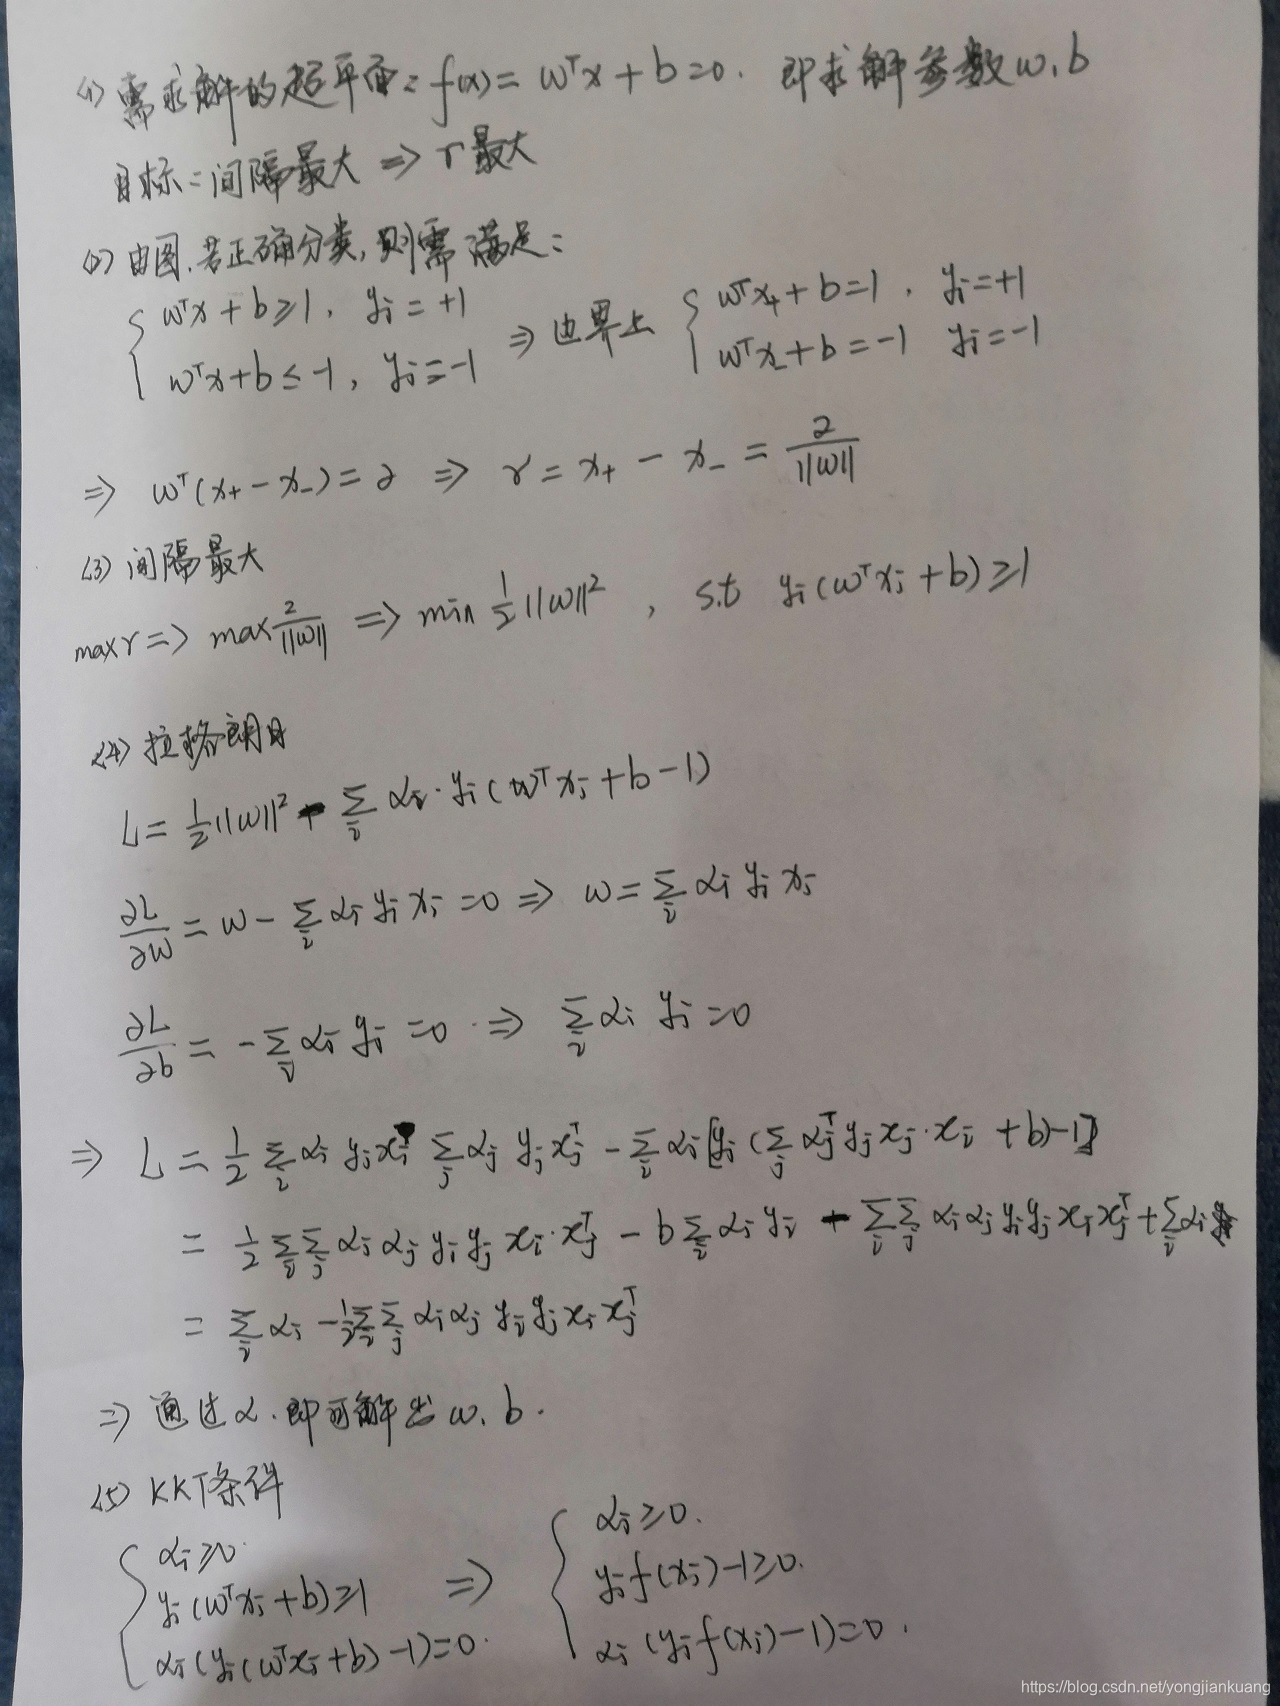 (1) 需求解的超平面: f(x) = wᵀx + b = 0. 即求解参数 w, b
目标: 间隔最大 ⇒ r 最大
(2) 由图, 若正确分类, 则需满足:
{ wᵀx + b ≥ 1, yᵢ = +1 ; wᵀx + b ≤ -1, yᵢ = -1 ⇒ 边界上 { wᵀx₊ + b = 1, yᵢ = +1 ; wᵀx₋ + b = -1 yᵢ = -1
⇒ wᵀ(x₊ - x₋) = 2 ⇒ r = x₊ - x₋ = 2/||w||
(3) 间隔最大
max r ⇒ max 2/||w|| ⇒ min 1/2 ||w||² , s.t yᵢ(wᵀxᵢ + b) ≥ 1
(4) 拉格朗日
L = 1/2 ||w||² - Σᵢ αᵢ · yᵢ(wᵀxᵢ + b - 1)
∂L/∂w = w - Σᵢ αᵢ yᵢ xᵢ = 0 ⇒ w = Σᵢ αᵢ yᵢ xᵢ
∂L/∂b = - Σᵢ αᵢ yᵢ = 0 ⇒ Σᵢ αᵢ yᵢ = 0
⇒ L = 1/2 Σᵢ αᵢ yᵢ xᵢ Σⱼ αⱼ yⱼ xⱼᵀ - Σᵢ αᵢ [yᵢ (Σⱼ αⱼᵀ yⱼ xⱼ · xᵢ + b) - 1]
= 1/2 Σᵢ Σⱼ αᵢ αⱼ yᵢ yⱼ xᵢ · xⱼᵀ - b Σᵢ αᵢ yᵢ - Σᵢ Σⱼ αᵢ αⱼ yᵢ yⱼ xᵢ xⱼᵀ + Σᵢ αᵢ
= Σᵢ αᵢ - 1/2 Σᵢ Σⱼ αᵢ αⱼ yᵢ yⱼ xᵢ xⱼᵀ
⇒ 通过 α. 即可解出 w, b.
(5) KKT条件
{ αᵢ ≥ 0. ⇒ { αᵢ ≥ 0.
yᵢ(wᵀxᵢ + b) ≥ 1 yᵢ f(xᵢ) - 1 ≥ 0.
αᵢ(yᵢ(wᵀxᵢ + b) - 1) = 0. αᵢ (yᵢ f(xᵢ) - 1) = 0.
https://blog.csdn.net/yongjiankuang